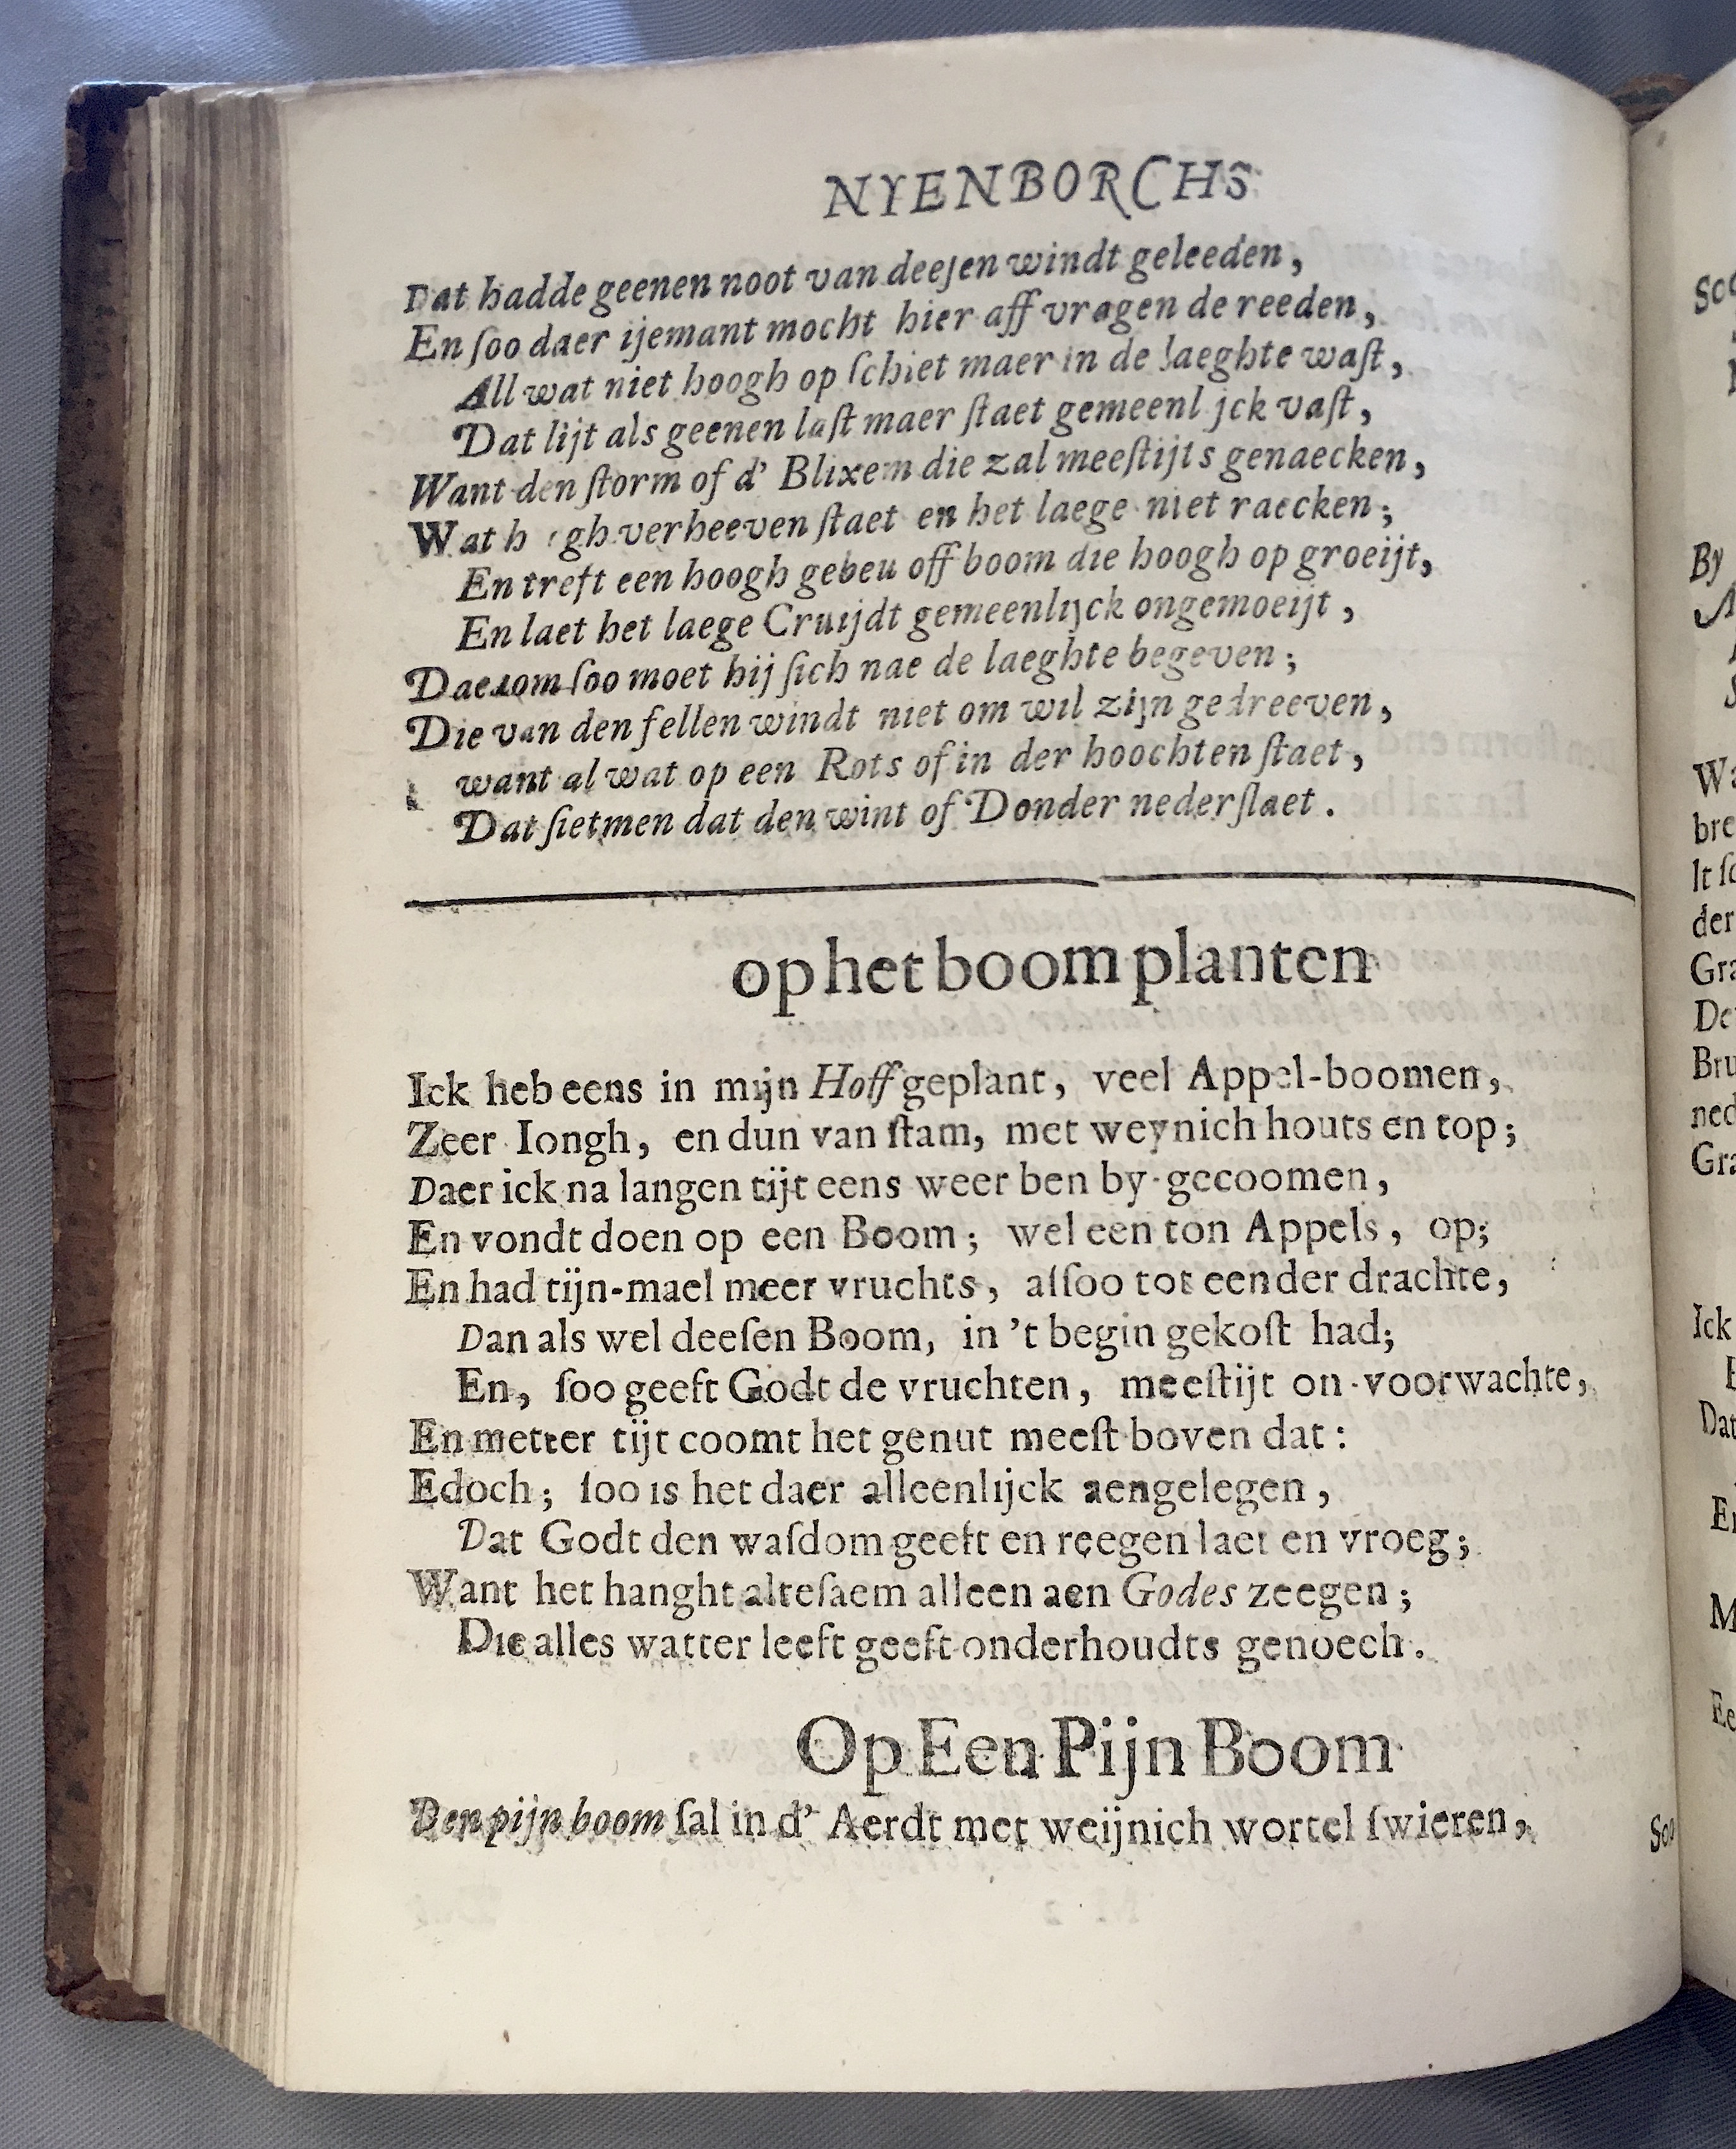 NYENBORCHS
Dat hadde geenen noot van deeſen windt geleeden,
En ſoo daer ijemant mocht hier aff vragen de reeden,
All wat niet hoogh op ſchiet maer in de laeghte waſt,
Dat lijt als geenen laſt maer ſtaet gemeenlijck vaſt,
Want den ſtorm of d' Blixem die zal meeſtijts genaecken,
Wat h gh verheeven ſtaet en het laege niet raecken;
En treft een hoogh gebeu off boom die hoogh op groeijt,
En laet het laege Cruijdt gemeenlijck ongemoeijt,
Daerom ſoo moet hij ſich nae de laeghte begeven;
Die van den fellen windt niet om wil zijn gedreeven,
want al wat op een Rots of in der hoochten ſtaet,
Dat ſietmen dat den wint of Donder nederſlaet.
op het boom planten
Ick heb eens in mijn Hoff geplant, veel Appel-boomen,
Zeer Iongh, en dun van ſtam, met weynich houts en top;
Daer ick na langen tijt eens weer ben by-gecoomen,
En vondt doen op een Boom; wel een ton Appels, op;
En had tijn-mael meer vruchts, alſoo tot eender drachte,
Dan als wel deeſen Boom, in 't begin gekoſt had;
En, ſoo geeft Godt de vruchten, meeſtijt on-voorwachte,
En metter tijt coomt het genut meeſt boven dat:
Edoch; ſoo is het daer alleenlijck aengelegen,
Dat Godt den waſdom geeft en reegen laet en vroeg;
Want het hanght alteſaem alleen aen Godes zeegen;
Die alles watter leeft geeft onderhoudts genoech.
Op Een Pijn Boom
Den pijn boom ſal in d' Aerdt met weijnich wortel ſwieren,
Soo
By
Ick
Dat